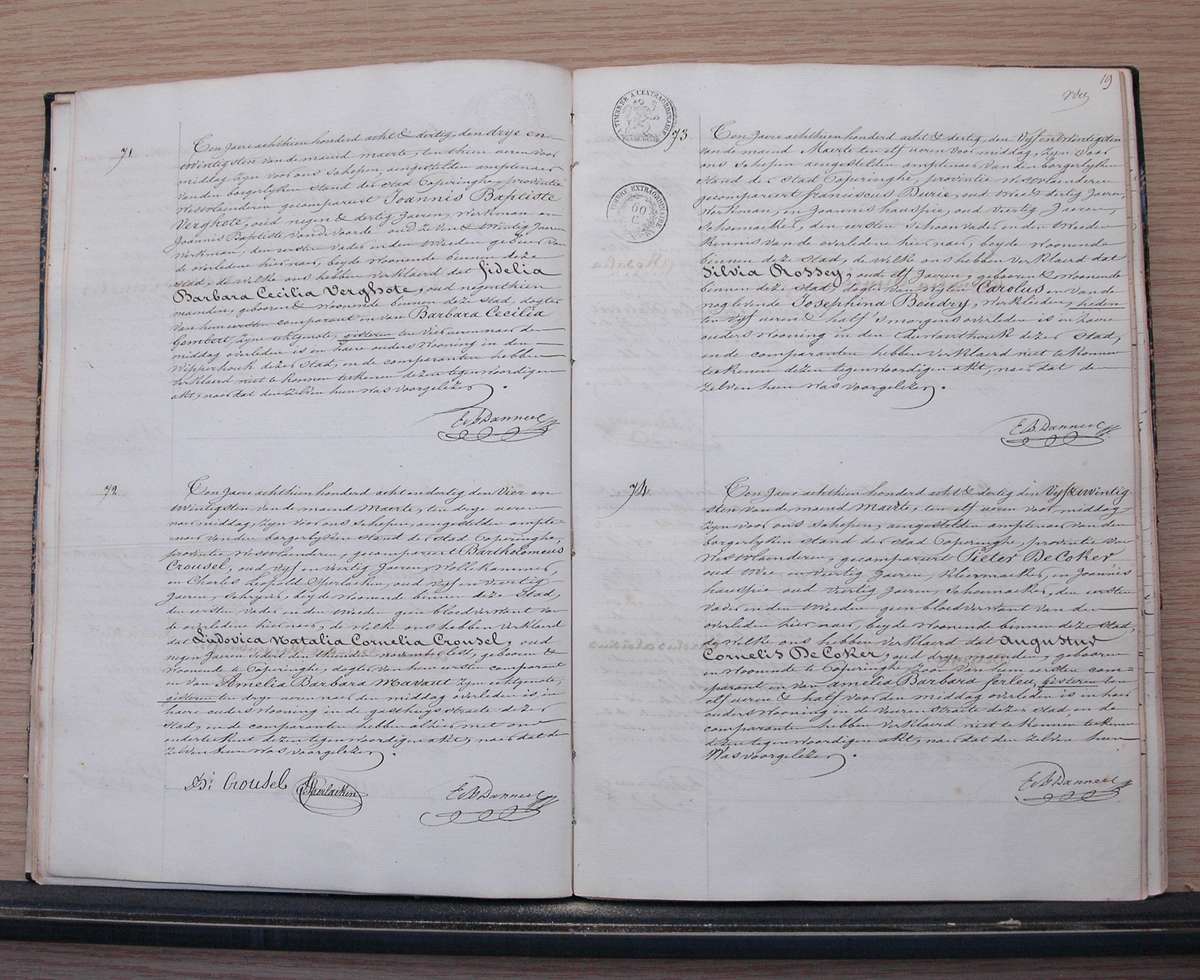 71
Een Jaere achthien honderd acht & dertig, den drye en
twintigsten van de maend maerte, ten thien ueren voor
middag zyn voor ons Schepen, aengestelden amptenaer
van den borgerlyken Stand der Stad Poperinghe, provintie
Westvlanderen gecompareert Joannis Baptiste
Verghote, oud negen & dertig Jaeren, Werkman en
Joannis Baptiste Vande Voorde oud zeven & twintig Jaeren
Werkman, den eersten vader en den tweeden gebuer van
de overledene hier naer, beyde woonende binnen deze
stad, de welke ons hebben verklaerd dat Fidelia
Barbara Cecilia Verghote, oud negenthien
maenden, geboren & woonende binnen deze stad, dogter
van hun eersten comparant en van Barbara Cecilia
Gombert zyne echtgenote, gisteren ten vier uren naer den
middag overleden is in haere ouders wooning in den
Wipperhoek dezer Stad, en de comparanten hebben
verklaerd niet te konnen teekenen dezen tegenwoordigen
akt, naer dat den zelven hun was voorgelezen.
72
Een Jaere achthien honderd acht en dertig den vier en
twintigsten van de maend Maerte, ten elf ueren
voor middag, zyn voor ons Schepen, aengestelden ampte-
naer van den borgerlyken stand der stad Poperinghe,
provintie Westvlanderen, gecompareert Bartholomeus
Crousel, oud vyf en veertig Jaeren, Wollekammer,
en Charles Leopold Sperlaekin, oud vyf en veertig
Jaeren, Schryver, beyde woonende binnen deze Stad,
den eersten vader en den tweeden geen bloedverwant van
de overledene hier naer, de welke ons hebben verklaerd
dat Ludovica Natalia Cornelia Crousel, oud
negen Jaeren, geboren &
woonende te Poperinghe, dogter van hun eersten comparant
en van Amelia Barbara Mavaut zyne echtgenote,
gisteren ten drye uren naer den middag overleden is in
haere ouders wooning in de gasthuys straete dezer
stad, en de comparanten hebben dezen met ons
onderteekent dezen tegenwoordigen akt, naer dat de
zelven hun was voorgelezen.
Bt Crousel
Sperlaekin
19
TIMBRE A L'EXTRAORDINAIRE
TIMBRE EXTRAORDINAIRE
73
Een Jaere achthien honderd acht & dertig, den vyf en twintigsten
van de maend Maerte ten elf ueren voor middag, zyn voor
ons Schepen aengestelden amptenaer van de borgerlyken
Stand der Stad Poperinghe, provintie Westvlanderen
gecompareert Franciscus Durie, oud twee & dertig Jaeren,
Werkman, en Joannis hauspie, oud veertig Jaeren,
Schoemaeker, den eersten Schoonvader en den tweeden
kennis van de overledene hier naer, beyde woonende
binnen deze stad, de welke ons hebben verklaerd dat
Silvia Rossey, oud elf Jaeren, geboren & woonende
binnen deze stad, dogter van wylen Carolus en van de
nog levende Josephina Boudry, werkleden, heden
ten vyf ueren & half 's morgens overleden is in haere
ouders wooning in den Couwenthoek dezer Stad,
en de comparanten hebben verklaerd niet te konnen
teekenen dezen tegenwoordigen akt, naer dat den
zelven hun was voorgelezen.
74
Een Jaere achthien honderd acht & dertig den vyf & twintig-
sten van de maend Maerte, ten elf ueren voor middag
zyn voor ons Schepen, aengestelden amptenaer van den
borgerlyken stand der stad Poperinghe, provintie van
Westvlaenderen, gecompareert Pieter De Coker
oud twee en veertig Jaeren, Kleermaeker, en Joannis
hauspie oud veertig Jaeren, Schoemaeker, den eersten
vader en den tweeden geen bloedverwant van den
overleden hier naer, beyde woonende binnen deze stad,
de welke ons hebben verklaerd dat Augustus
Cornelis De Coker, oud drye maenden, geboren
en woonende te Poperinghe zoon van hun eersten com-
parant en van Amelia Barbara ferleu, gisteren ten
elf ueren & half voor den middag overleden is in haere
ouders wooning in de Veuren straete dezer stad en de
comparanten hebben verklaerd niet te konnen teekenen
dezen tegenwoordigen akt, naer dat den zelven hun
was voorgelezen.